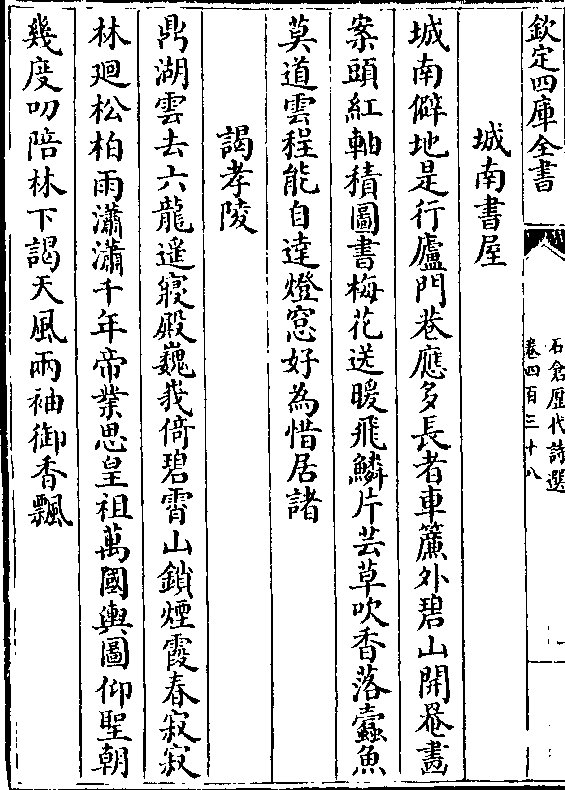 欽定四庫全書
石倉歷代詩選
卷四百三十八
城南書屋
城南僻地是行廬門巷應多長者車簾外碧山開罨畫
案頭紅軸積圖書梅花送暖飛鱗片芸草吹香落蠹魚
莫道雲程能自達燈窓好為惜居諸
謁孝陵
鼎湖雲去六龍遥寢殿巍我倚碧霄山鎖煙霞春寂寂
林廻松柏雨瀟瀟千年帝業思皇祖萬國輿圖仰聖朝
幾度叨陪林下謁天風兩袖御香飄